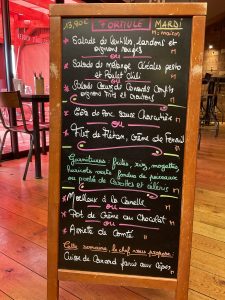 13,90€ FORMULE MARDI
* Salade de lentilles lardons et
oignons rouges M
ou
* Salade de mélange Céréales pesto
et Poulet M
ou
* Salade Coeurs de Canards Confits
oignons frits et croutons M
* Côte de Porc Sauce Charcutière
ou M
* Filet de Flétan, Crème de Fenouil
M
Garnitures : frites, riz,
haricots verts, fondue de
ou purée de Carottes et céleri M
* Moelleux à la Canelle M
ou
* Pot de Crème au Chocolat M
ou
* Assiette de Comté M
Cette semaine, le chef vous propose :
Cuisse de Canard farcie aux Cèpes